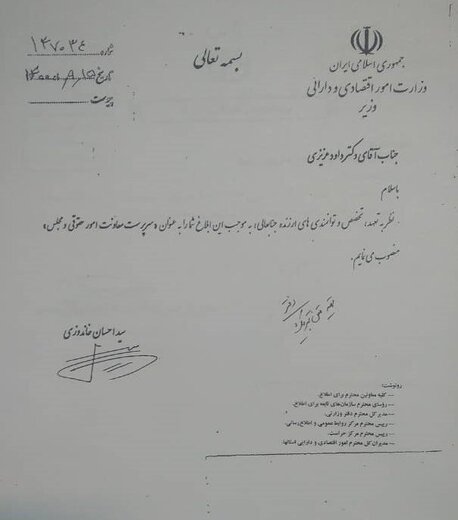 بسمه تعالی
جمهوری اسلامی ایران
وزارت امور اقتصادی و دارائی
وزیر
شماره ۱۴۷۰۳۶
تاریخ ۱۴۰۰/۰۹/۱۵
پیوست
جناب آقای دکتر داود عزیزی
باسلام
نظر به تعهد، تخصص و توانمندی های ارزنده جنابعالی، به موجب این ابلاغ شما را به عنوان «سرپرست معاونت امور حقوقی و مجلس»
منصوب می نمایم.
سید احسان خاندوزی
رونوشت:
– کلیه معاونین محترم برای اطلاع.
– روسای محترم سازمان‌های تابعه برای اطلاع.
– مدیر کل محترم دفتر وزارتی.
– رییس محترم مرکز روابط عمومی و اطلاع‌رسانی.
– رییس محترم مرکز حراست.
– مدیران کل محترم امور اقتصادی و دارایی استانها.